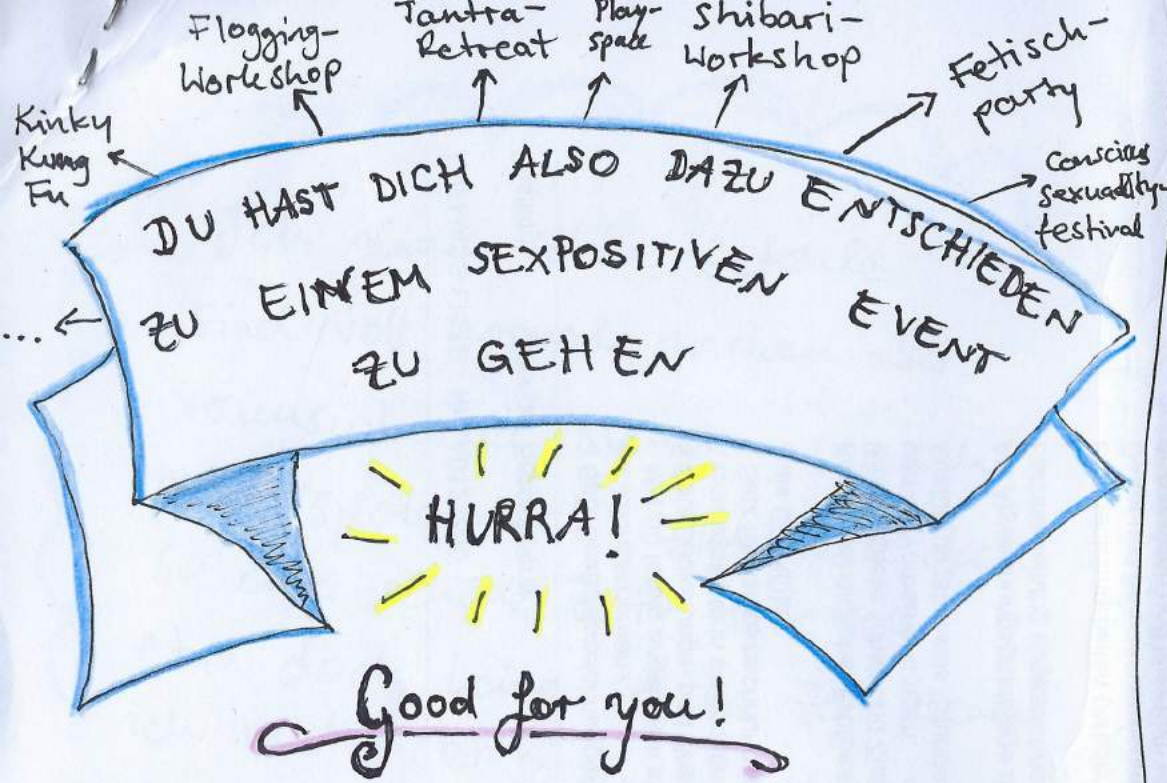 Flogging-
Workshop
Tantra-
Retreat
Play-
space
Shibari-
Workshop
Fetisch-
party
Kinky
Kung
Fu
Conscious
sexuality-
festival
...
DU HAST DICH ALSO DAZU ENTSCHIEDEN
ZU EINEM SEXPOSITIVEN EVENT
ZU GEHEN
HURRA!
Good for you!